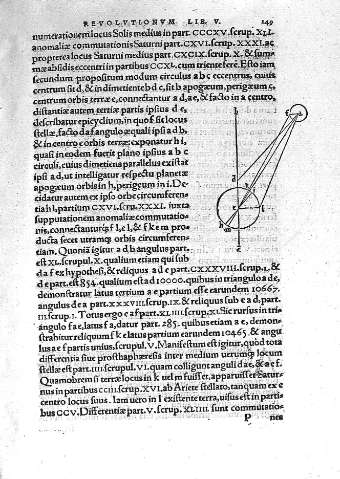 REVOLVTIONVM LIB. V. 149
numerationem locus Solis medius in part. CCCXV. scrup. XLI.
anomaliæ commutationis Saturni part. CXVI. scrup. XXXI. ac
propterea locus Saturni medius part. CXCIX. scrup. X. & sum-
mæ absidis eccentri in partibus CCXL. cum triente ferè. Esto iam
secundum propositum modum circulus a b c eccentrus, cuius
centrum sit d, & in dimetiente b d c, sit b apogæum, perigæum c,
centrum orbis terræ e, connectantur a d, a e, & facto in a centro,
distantiæ autem tertia partis ipsius d e,
describatur epicyclium, in quo f sit locus
stellæ, facto d a f angulo æquali ipsi a d b,
& in centro orbis terræ exponatur h i,
quasi in eodem fuerit plano ipsius a b c
circuli, cuius dimetiens parallelus existat
ipsi a d, ut intelligatur respectu planetæ
apogæum orbis in h, perigæum in i. De-
cidatur autem ex ipso orbe circumferen-
tia h l, partium CXVI. scru. XXXI. iuxta
supputationem anomaliæ commutatio-
nis, connectantur f l, e l, & f k e m pro-
ducta secet utramque orbis circumferen-
tiam. Quoniam igitur a d b angulus part.
est XLI. scrupul. X. qualium etiam qui sub
d a f ex hypothesi, & reliquus a d e part. CXXXVIII. scrup. L, &
d e part. est 854. qualium est a d 10000. quibus in triangulo a d e,
demonstratur latus tertium a e partium esse earundem 10667.
angulus d e a part. XXXVIII. scrup. IX. & reliquus sub e a d, part.
III scrup. 1. Totus ergo e a f part. XLIIII. scrup. XII. Sic rursus in tri-
angulo f a e, latus f a, datur part. 285. quibus etiam a e, demon-
strabitur reliquum f k e latus partium earundem 10465. & angu-
lus a e f partis unius, scrupul. V. Manifestum est igitur, quòd tota
differentia siue prosthaphæresis inter medium uerumque locum
stellæ est part. IIII. scrupul. VI. quam colligunt anguli d a e, & a e f.
Quamobrem si terræ locus in k uel m fuisset, apparuisset Satur-
nus in partibus CCIII. scrup. XVI. ab Ariete stellato, tanquam ex e
centro locus suus. Iam uero in l existente terra, uisus est in parti-
bus CCV. Differentiæ part. V. scrup. XLIIII. sunt commutatio-
P nes